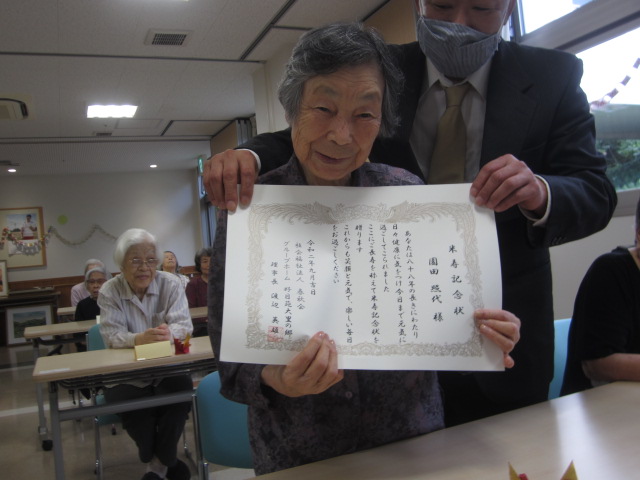 米寿記念状
園田 照代 様
あなたは八十八年の長きにわたり
日々健康に気をつけ今日まで元気に
過ごしてこられました
ここにご長寿を好えて米寿記念状を
贈ります
これからも笑顔と元気で、楽しい毎日
をお過しください
令和二年九月吉日
社会福祉法人 春秋会
グループホーム
理事長 渡辺